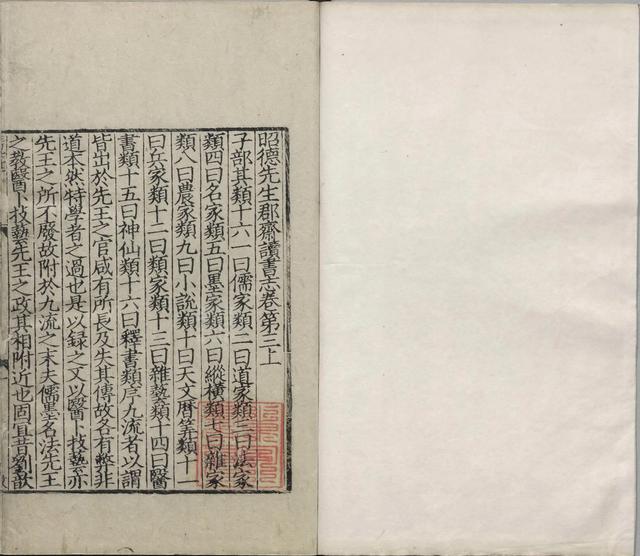 昭德先生郡齋讀書志卷第三上
子部其類十六一曰儒家類二曰道家類三曰法家
類四曰名家類五曰墨家類六曰縱橫類七曰雜家
類八曰農家類九曰小說類十曰天文曆筭類十一
曰兵家類十二曰類家類十三曰雜藝類十四曰醫
書類十五曰神仙類十六曰釋書類序九流者以謂
皆出於先王之官咸有所長及失其傳故各有弊非
道本然特學者之過也是以録之又以醫卜技藝亦
先王之所不廢故附於九流之末夫儒墨名法先王
之教醫卜技藝先王之政其相附近也固宜昔劉歆